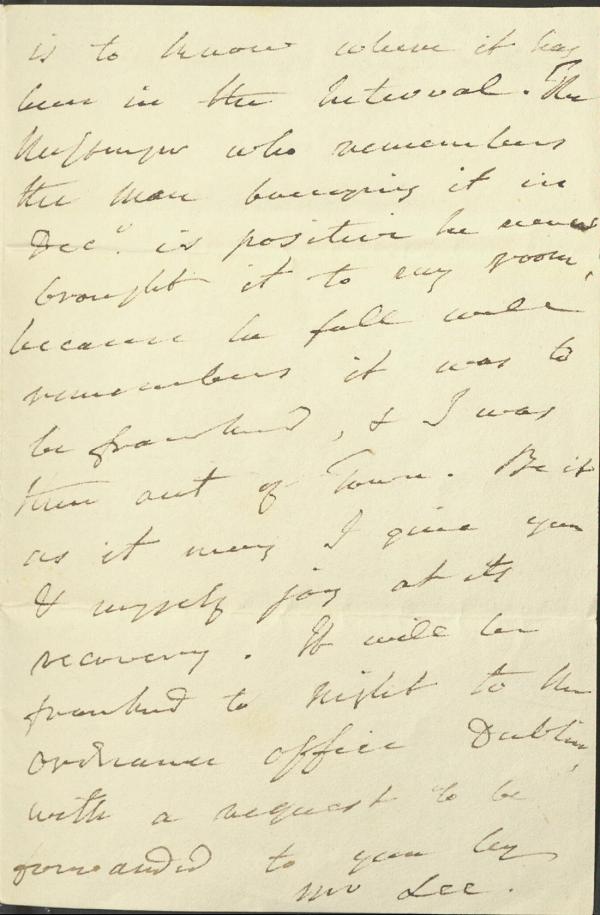 is to know where it has
been in the Interval. The
Messenger who remembers
the Man bringing it in
Decr. is positive he never
brought it to my room,
because he full well
remembers it was to
be franked, & I was
then out of Town. Be it
as it may I give you
& myself joy at its
recovery. It will be
franked to night to the
ordnance office Dublin,
with a request to be
forwarded to you by
Mr Lee.